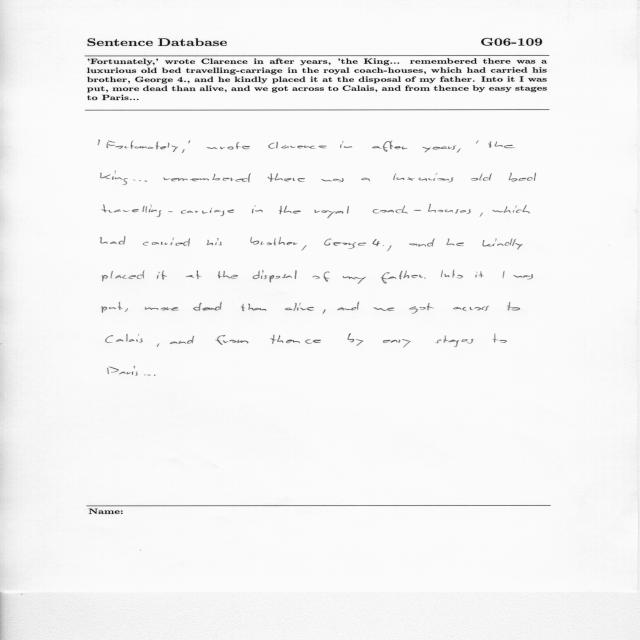 Sentence Database G06-109
'Fortunately,' wrote Clarence in after years, 'the King... remembered there was a
luxurious old bed travelling-carriage in the royal coach-houses, which had carried his
brother, George 4., and he kindly placed it at the disposal of my father. Into it I was
put, more dead than alive, and we got across to Calais, and from thence by easy stages
to Paris...
'Fortunately,' wrote Clarence in after years, 'the
King... remembered there was a luxurious old bed
travelling-carriage in the royal coach-houses, which
had carried his brother, George 4., and he kindly
placed it at the disposal of my father. Into it I was
put, more dead than alive, and we got across to
Calais, and from thence by easy stages to
Paris...
Name: